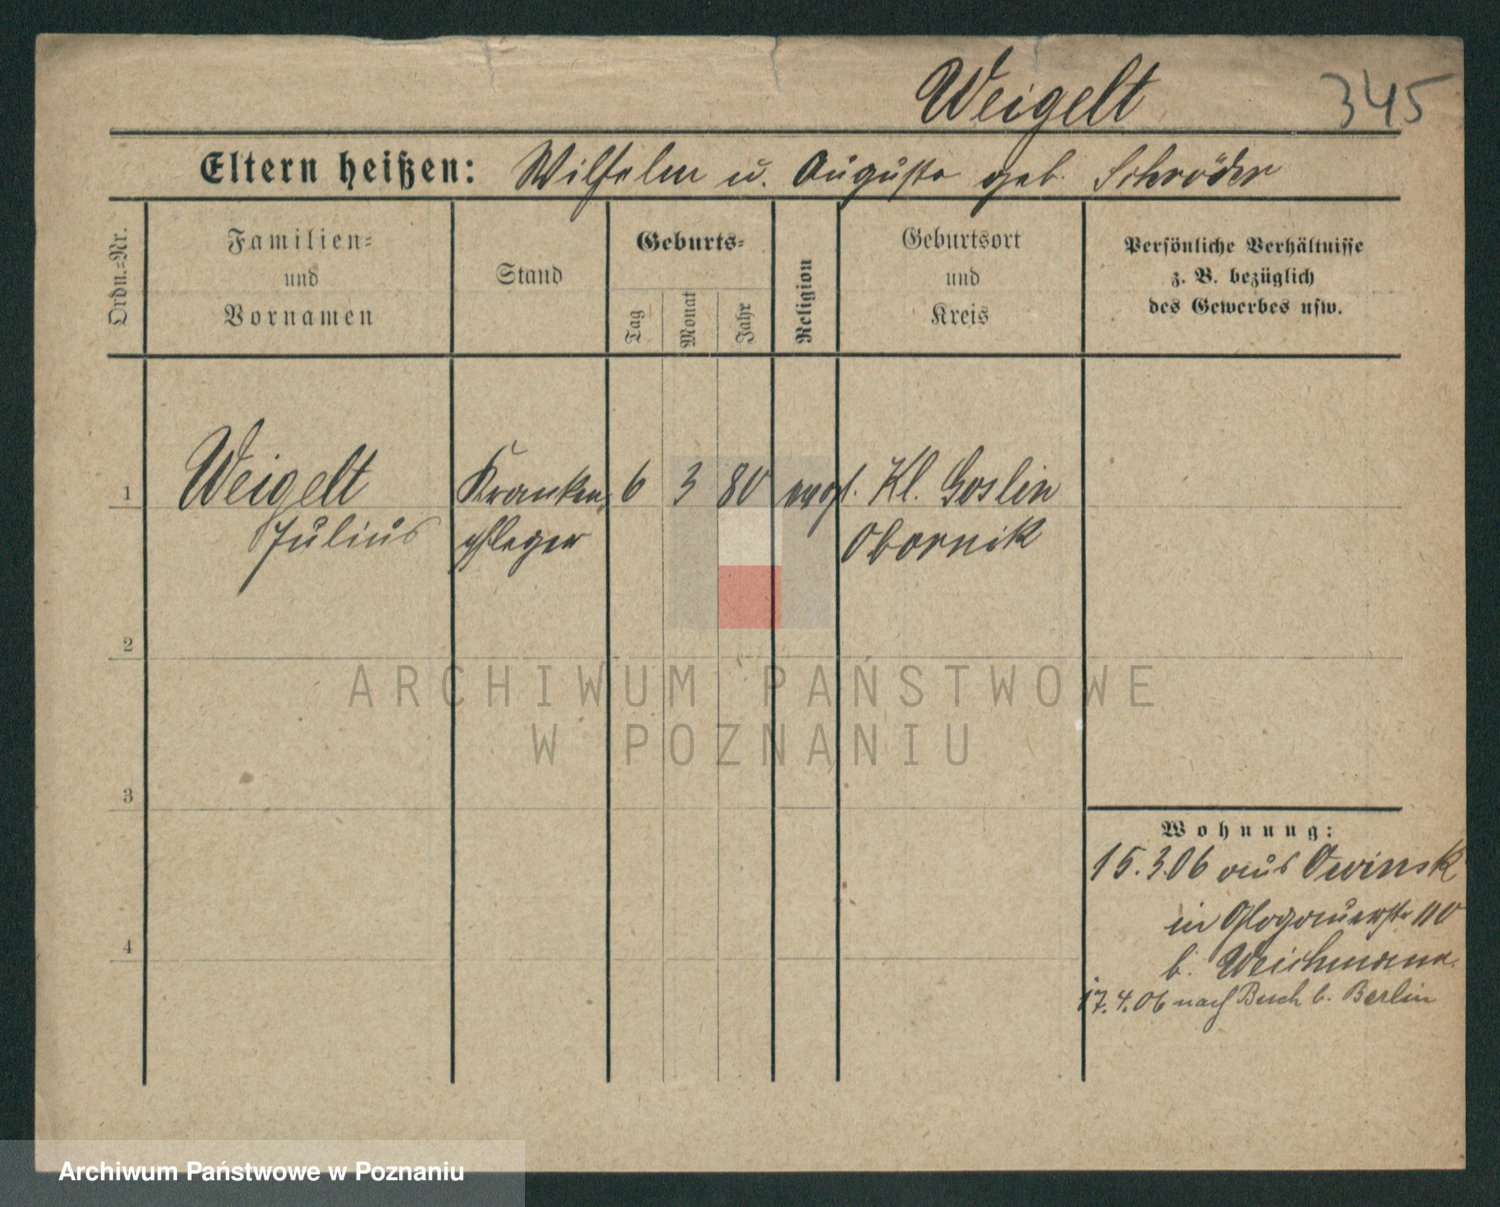 Weigelt 345
Eltern heißen: Wilhelm u. Auguste geb. Schröder
Ordn.-Nr.
Familien-
und
Vornamen
Stand
Geburts-
Tag
Monat
Jahr
Religion
Geburtsort
und
Kreis
Persönliche Verhältnisse
z. B. bezüglich
des Gewerbes usw.
1 Weigelt Kranken 6 3 80 evgl. Kl. Goslin
Julius pfleger Obornik
2
3
4
Wohnung:
15.3.06 aus Owinsk
in Glogauerstr 110
b. Weichmann.
17.4.06 nach Buch b. Berlin
ARCHIWUM PAŃSTWOWE
W POZNANIU
Archiwum Państwowe w Poznaniu